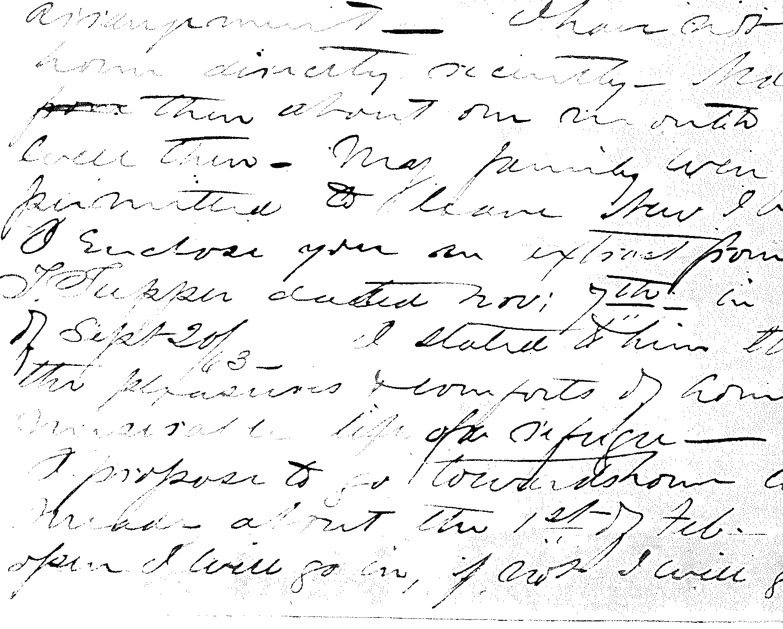 arrangement — I have not
home directly recently —
then about one month
well then — My family were
permitted to leave New
I Enclose you an extract from
T. Tupper dated Nov: 7th — in
of Sept 20/63 — I stated to him
the pleasures & comforts of hom
miserable life of a refugee —
I propose to go towards home
about the 1st of Feb.
open I will go in, if not I will g